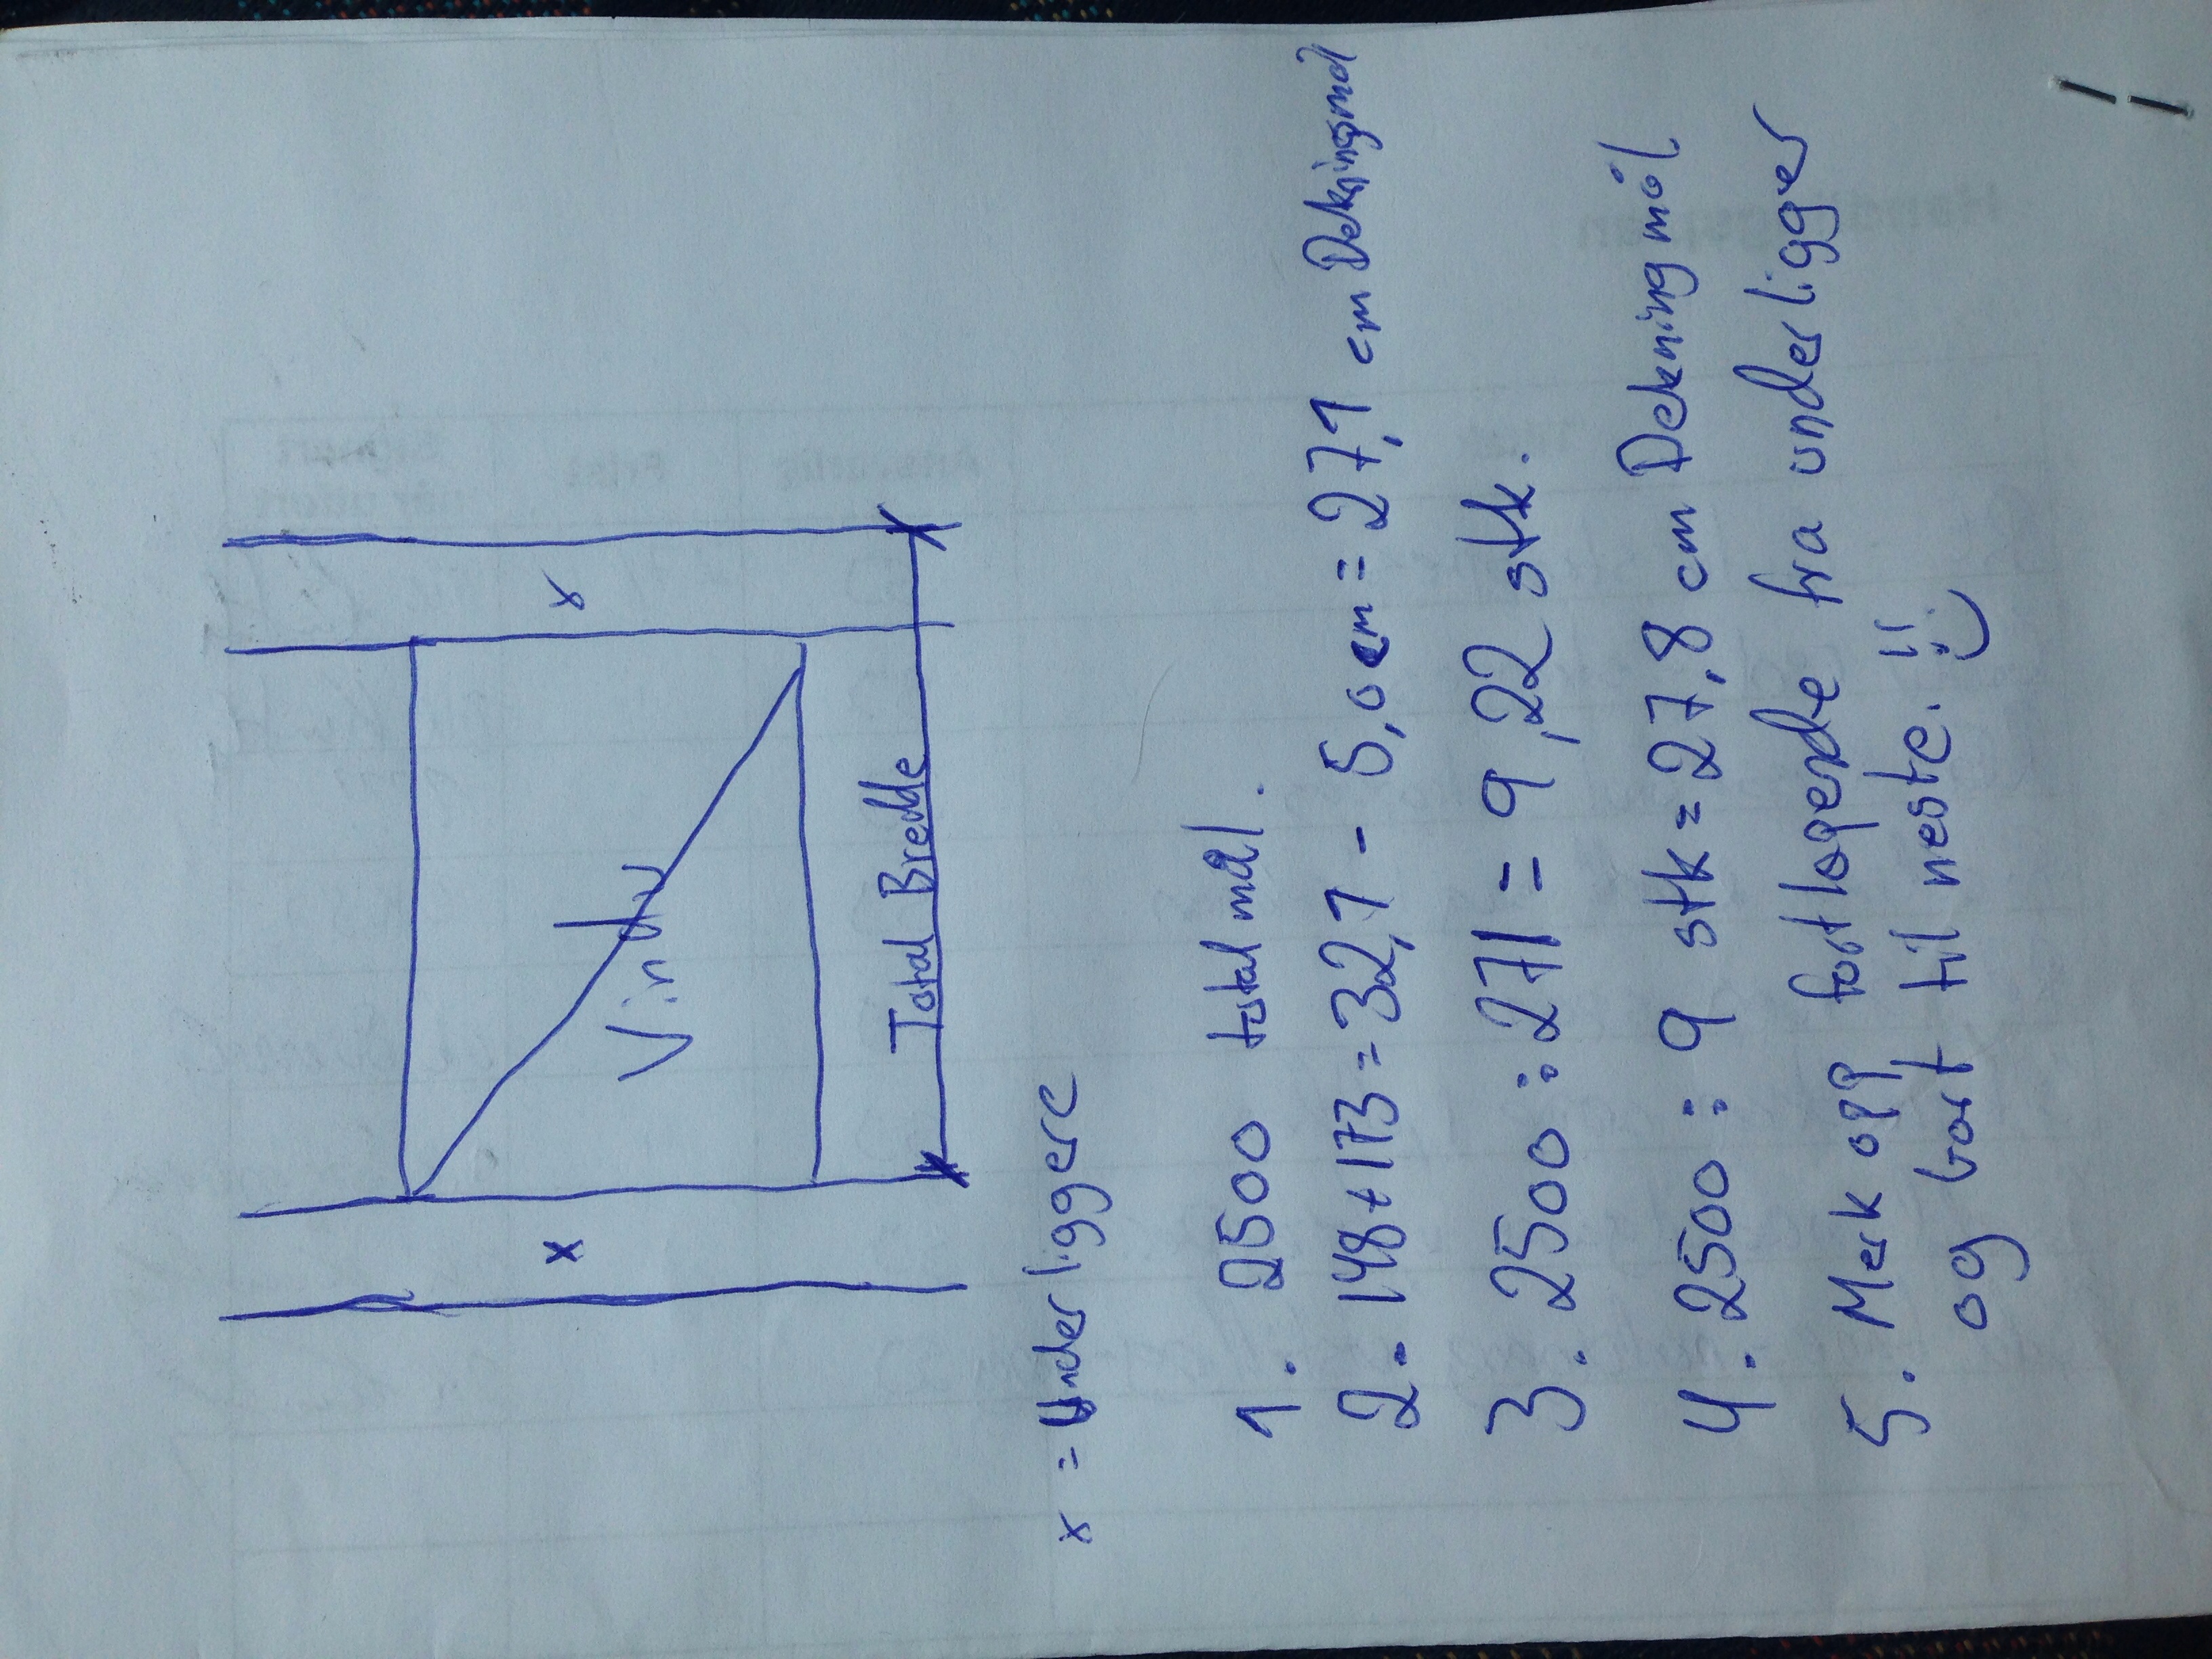 x
Vindu
x
Total Bredde
x = Underliggere
1. 2500 total mål.
2. 148+173=32,1 - 5,0 cm = 27,1 cm Dekningsmål
3. 2500 : 271 = 9,22 stk.
4. 2500 : 9 stk = 27,8 cm Dekningmål
5. Merk opp fortløpende fra underligger
og bort til neste. !!